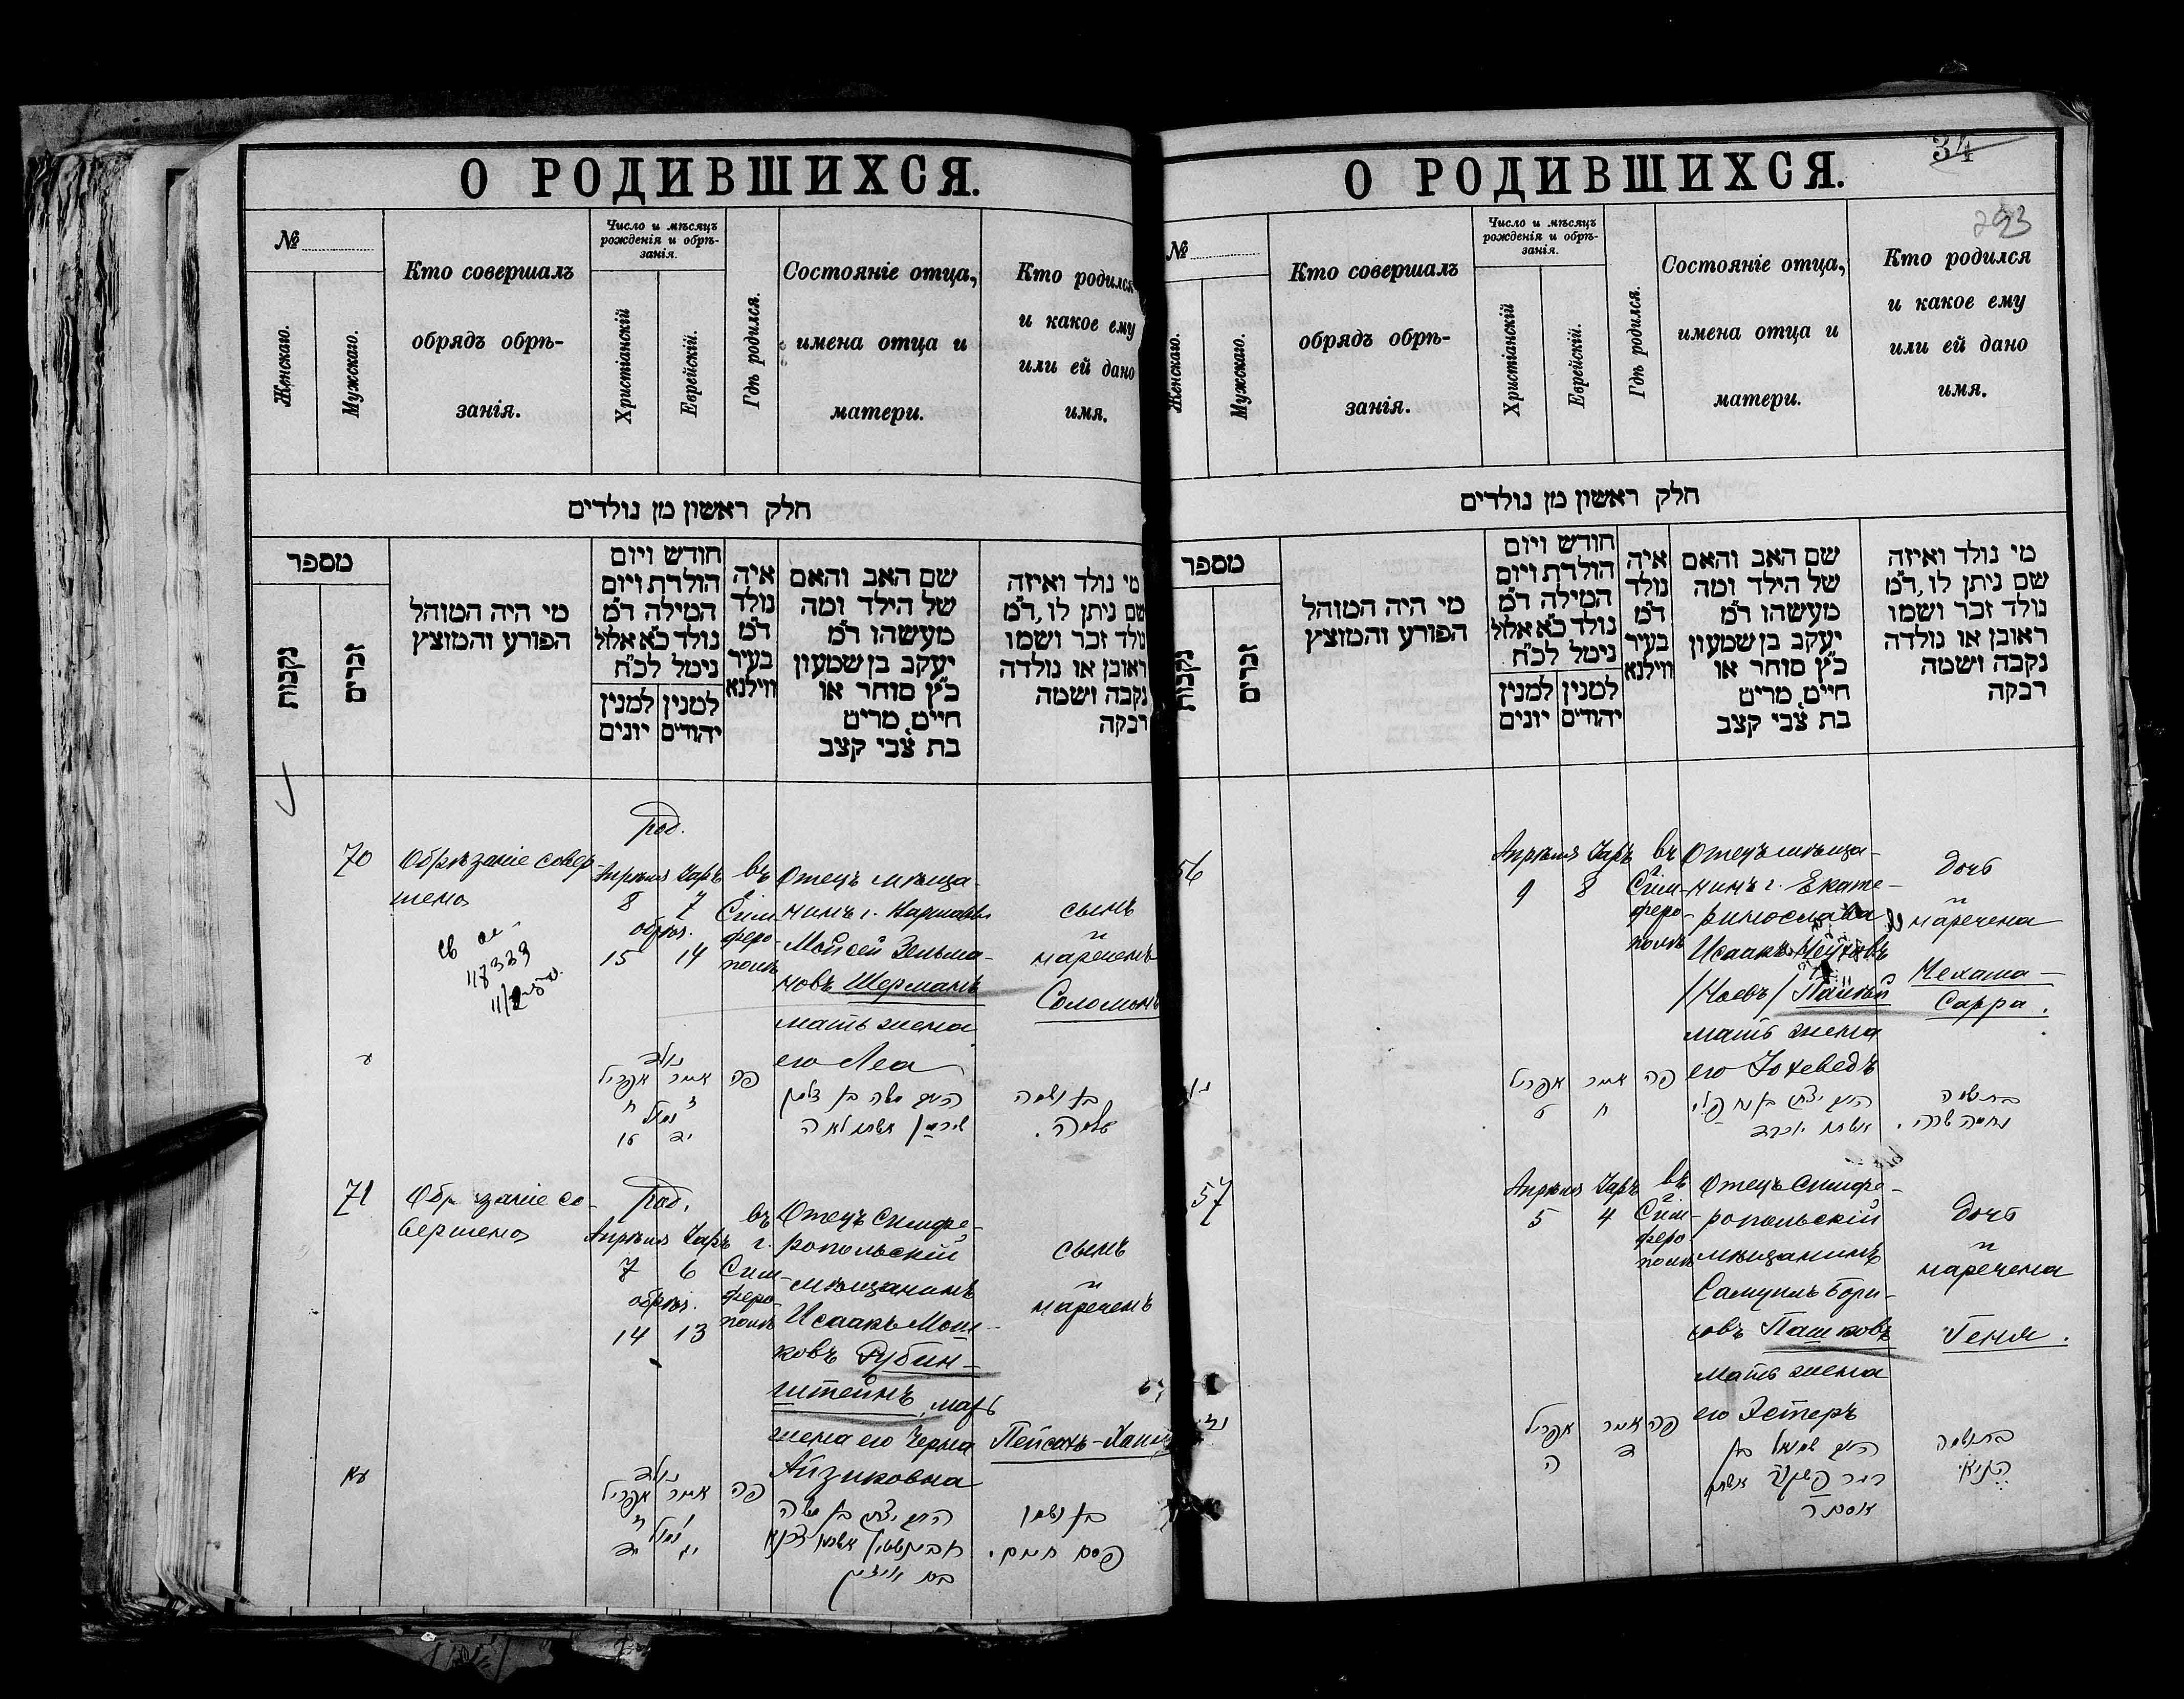 О РОДИВШИХСЯ.
№
Женскаго.
Мужскаго.
Кто совершалъ
обрядъ обрѣ-
занія.
Число и мѣсяцъ
рожденія и обрѣ-
занія.
Христіанскій
Еврейскій.
Гдѣ родился.
Состояніе отца,
имена отца и
матери.
Кто родился
и какое ему
или ей дано
имя.
חלק ראשון מן נולדים
מספר
נקבות
זכרים
מי היה המוהל
הפורע והמוצץ
חודש ויום
הולדת ויום
המילה ד״מ
נולד כ״א אלול
נימל לכ״ח
למנין
יונים
למנין
יהודים
איה
נולד
ד״מ
בעיר
ווילנא
שם האב והאם
של הילד ומה
מעשהו ד״מ
יעקב בן שמעון
כ״ץ סוחר או
חיים, מרים
בת צבי קצב
מי נולד ואיזה
שם ניתן לו, ד״מ
נולד זכר ושמו
ראובן או נולדה
נקבה ושמה
רבקה
70
Обрѣзаніе совер-
шено
род.
Апрѣля Іаръ
8 7
обрѣз.
15 14
въ
г.
Сим-
феро-
полѣ
Отецъ мѣща-
нинъ г.
Мойсей Зельма-
новъ Шерманъ
мать жена
его Леа
сынъ
и
нареченъ
Соломонъ
נולד
אפריל
אייר
ח
ז
נמול
טו
יד
פה
ע
האב משה בן זלמן
שירמן אשתו לאה
בן ושמו
שלמה.
71
Обрѣзаніе со-
вершено
род.
Апрѣля Іаръ
7 6
обрѣз.
14 13
въ
г.
Сим-
феро-
полѣ
Отецъ Симфе-
ропольскій
мѣщанинъ
Исаакъ Мош-
ковъ Рубин-
штейнъ, мать
жена его Черна
Айзиковна
сынъ
и
нареченъ
Пейсахъ-Хаимъ
עא
נולד
אפריל
אייר
ז
ו
נמול
יד
יג
פה
האב יצחק בן משה
בן ושמו
פסח חיים.
О РОДИВШИХСЯ.
34
293
№
Женскаго.
Мужскаго.
Кто совершалъ
обрядъ обрѣ-
занія.
Число и мѣсяцъ
рожденія и обрѣ-
занія.
Христіанскій
Еврейскій.
Гдѣ родился.
Состояніе отца,
имена отца и
матери.
Кто родился
и какое ему
или ей дано
имя.
חלק ראשון מן נולדים
מספר
נקבות
זכרים
מי היה המוהל
הפורע והמוצץ
חודש ויום
הולדת ויום
המילה ד״מ
נולד כ״א אלול
נימל לכ״ח
למנין
יונים
למנין
יהודים
איה
נולד
ד״מ
בעיר
ווילנא
שם האב והאם
של הילד ומה
מעשהו ד״מ
יעקב בן שמעון
כ״ץ סוחר או
חיים, מרים
בת צבי קצב
מי נולד ואיזה
שם ניתן לו, ד״מ
נולד זכר ושמו
ראובן או נולדה
נקבה ושמה
רבקה
56
Апрѣля Іаръ
9 8
въ
г.
Сим-
феро-
полѣ
Отецъ мѣща-
нинъ г. Екате-
ринослава
Исаакъ
/Ноевъ/
мать жена
его Іохеведъ
дочь
и
наречена
Нехама-
Сарра.
אפריל
אייר
ט
ח
פה
האב יצחק בן נח
אשתו יוכבד
בת ושמה
נחמה שרה.
57
Апрѣля Іаръ
5 4
въ
г.
Сим-
феро-
полѣ
Отецъ Симфе-
ропольскій
мѣщанинъ
Самуилъ Бори-
совъ Пашковъ
мать жена
его Эстеръ
дочь
и
наречена
Геня.
אפריל
אייר
ה
ד
פה
האב שמואל בן
אסתר
בת ושמה